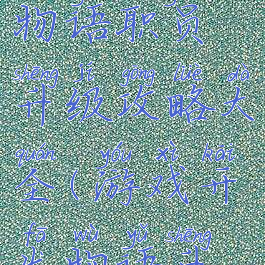 物语职员
shēng jí gōng lüè dà
升级攻略大
quán yóu xì kāi
全(游戏开
fā wù yǔ shēng
发物语升